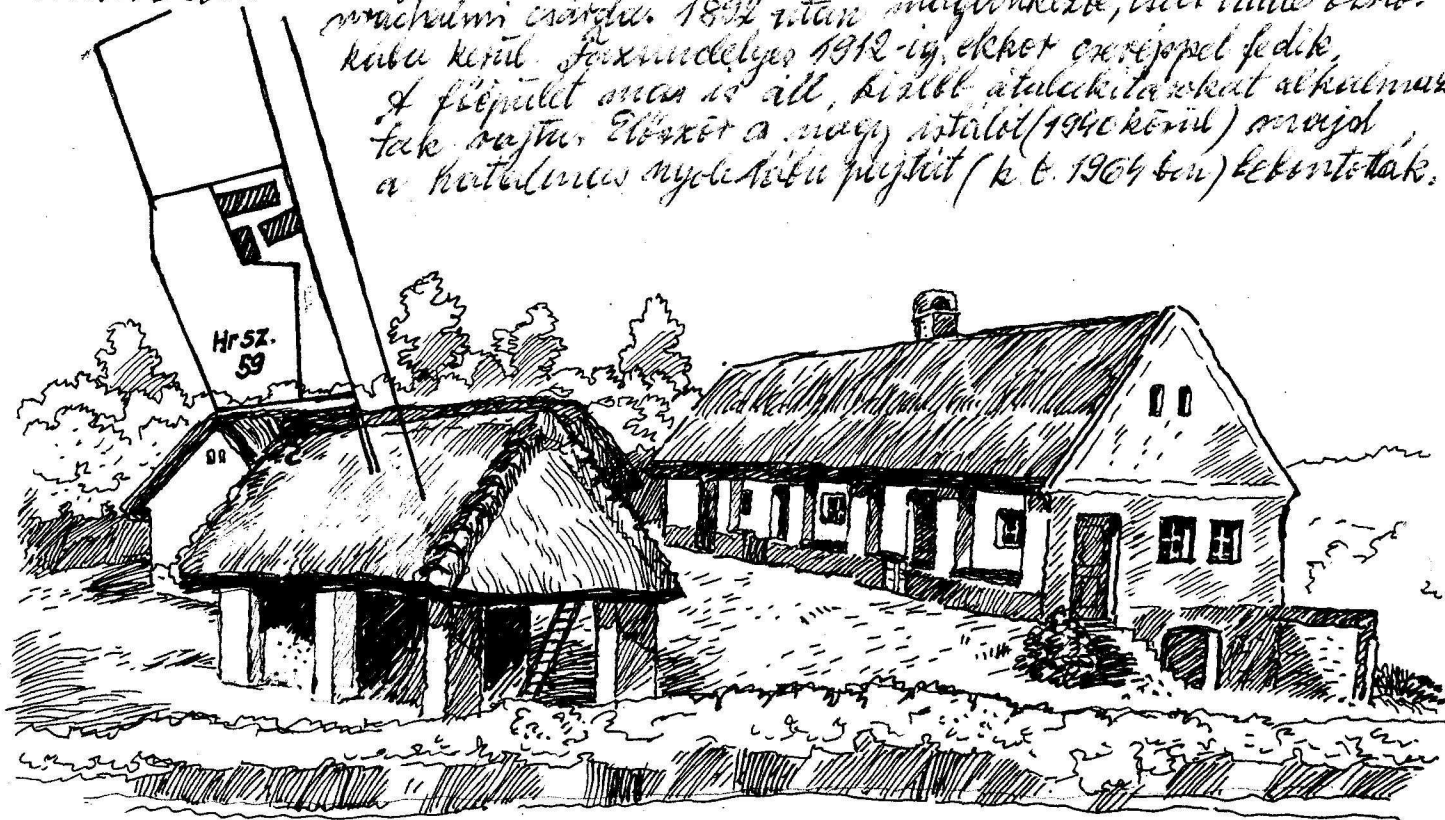 csárda. 1892 után magánkézbe,
kába kerül. Fazsindelyes 1912-ig, ekkor cseréppel fedik.
A főépület mas is áll, kisebb átalakításokat alkalmaz
tak rajta. Először a nagy istálót (1940 körül) majd
a hatalmas nyolclábú pajtát (k. b. 1964 ben) lebontották.
Hrsz.
59